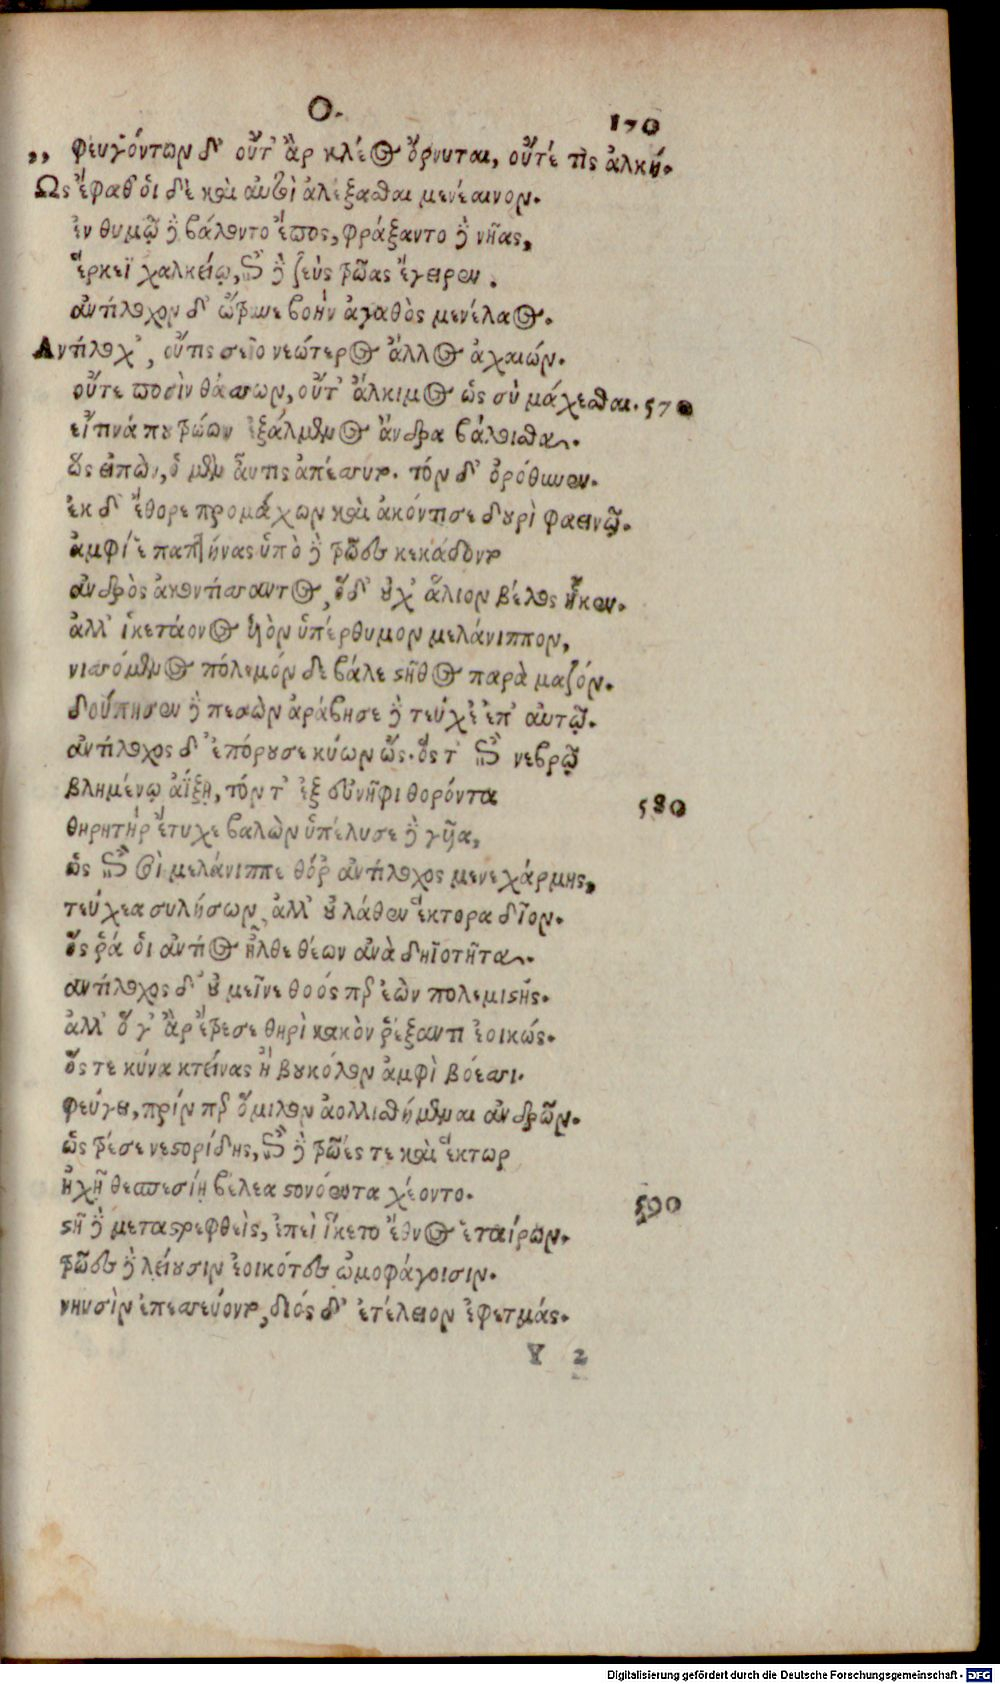 Ο.
170
,, φευγόντων δ' οὔτ' ἂρ κλέος ὄρνυται, οὔτέ τις ἀλκή.
Ως ἔφαθ' ὁι δὲ καὶ ἀυτοὶ ἀλέξασθαι μενέαινον.
ἐν θυμῷ δὲ βάλοντο ἔπος, φράξαντο δὲ νῆας,
ἕρκεϊ χαλκείῳ, ἐπὶ δὲ ζεὺς τρῶας ἔγειρεν.
ἀντίλοχον δ' ὤτρυνε βοὴν ἀγαθὸς μενέλαος.
Αντίλοχ', οὔτις σεῖο νεώτερος ἄλλος ἀχαιών.
οὔτε ποσὶν θάσσων, οὔτ' ἄλκιμος ὡς σὺ μάχεσθαι. 570
εἴ τινά που τρώων ἐξάλμενος ἄνδρα βάλοισθα.
ὣς εἰπὼν, ὁ μὲν αὖτις ἀπέσσυτο. τόν δ' ὀρόθυνεν.
ἐκ δ' ἔθορε προμάχων καὶ ἀκόντισε δουρὶ φαεινῷ.
ἀμφί ἑ παπτήνας ὑπὸ δὲ τρῶες κεκάδοντο
ἀνδρὸς ἀκοντίσσαντος, ὅδ' οὐχ' ἅλιον βέλος ἧκεν.
ἀλλ' ἱκετάονος ὑιὸν ὑπέρθυμον μελάνιππον,
νισσόμενος πόλεμόν δε βάλε στῆθος παρὰ μαζόν.
δούπησεν δὲ πεσὼν ἀράβησε δὲ τεύχε' ἐπ' αυτῷ.
ἀντίλοχος δ' ἐπόρουσε κύων ὥς. ὅς τ' ἐπὶ νεβρῷ
βλημένῳ ἀΐξῃ, τόν τ' ἐξ εὐνῆφι θορόντα 580
θηρητὴρ ἔτυχε βαλὼν ὑπέλυσε δὲ γῦα,
ὡς ἐπὶ σοὶ μελάνιππε θόρ' ἀντίλοχος μενεχάρμης,
τεύχεα συλήσων, ἀλλ' οὐ λάθεν ἕκτορα δῖον.
ὅς ῥά ὁι ἀντίος ἦλθε θέων ἀνὰ δηϊοτῆτα.
ἀντίλοχος δ' οὐ μεῖνε θοός περ ἐὼν πολεμιστής.
ἀλλ' ὅ γ' ἂρ ἔτρεσε θηρὶ κακὸν ῥέξαντι ἐοικώς.
ὅς τε κύνα κτείνας ἢ βουκόλον ἀμφὶ βόεσσι.
φεύγει, πρίν περ ὅμιλον ἀολλισθήμεναι ἀνδρῶν.
ὡς τρέσε νεστορίδης, ἐπὶ δὲ τρῶές τε καὶ ἕκτωρ
ἠχῇ θεσπεσίῃ βέλεα στονόεντα χέοντο. 590
στῆ δὲ μεταστρεφθεὶς, ἐπεὶ ἵκετο ἔθνος ἑταίρων.
τρῶες δὲ λείουσιν ἐοικότες ὠμοφάγοισιν.
νηυσὶν ἐπεσσεύοντο, διός δ' ἐτέλειον ἐφετμάς.
Y 2
Digitalisierung gefördert durch die Deutsche Forschungsgemeinschaft - DFG